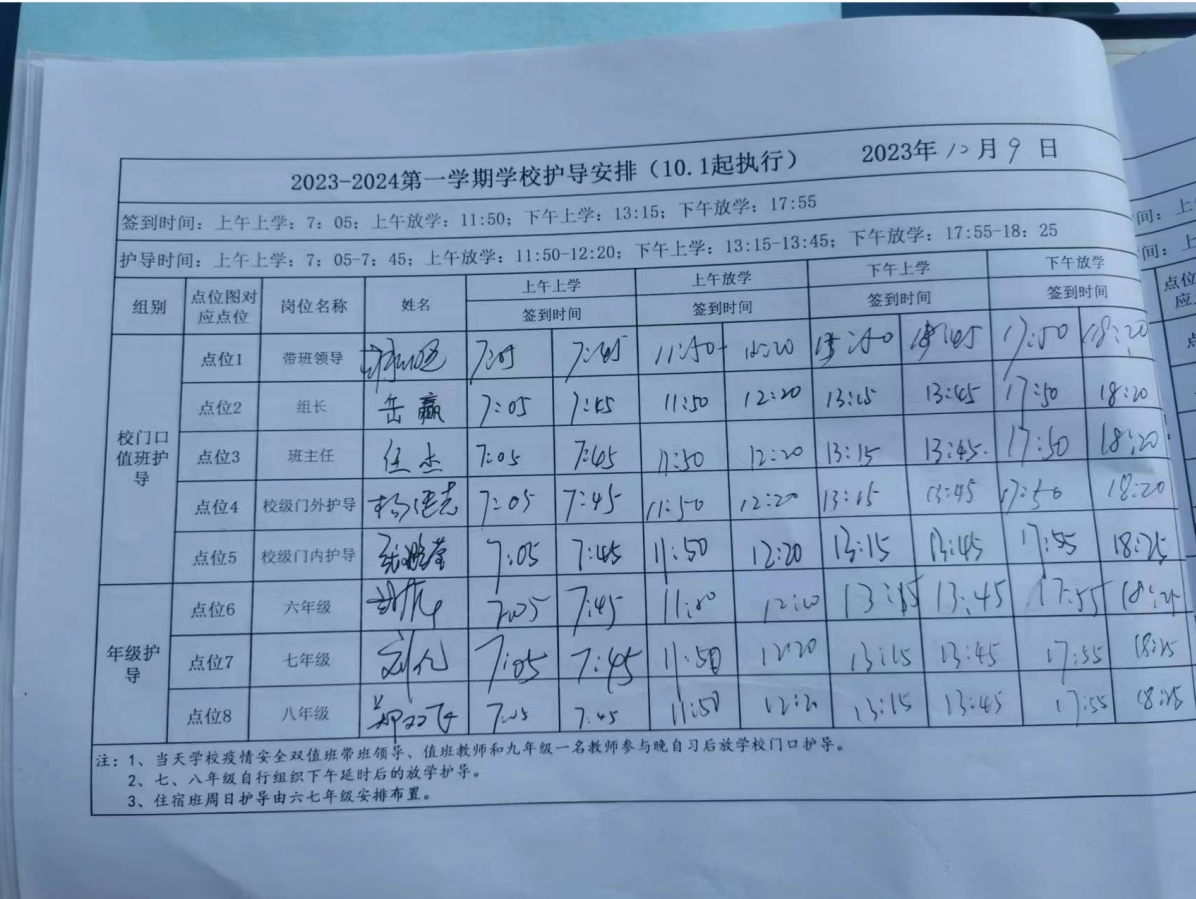 2023-2024第一学期学校护导安排（10.1起执行） 2023年10月9日
签到时间：上午上学：7：05；上午放学：11:50；下午上学：13:15；下午放学：17:55
护导时间：上午上学：7：05-7：45；上午放学：11:50-12:20；下午上学：13:15-13:45；下午放学：17:55-18：25
组别 点位图对应点位 岗位名称 姓名 上午上学 上午放学 下午上学 下午放学
签到时间 签到时间 签到时间 签到时间
校门口值班护导
点位1 带班领导 7:05 7:45 11:50 12:20 17:50 18:20
点位2 组长 岳赢 7:05 7:45 11:50 12:20 13:15 13:45 17:50 18:20
点位3 班主任 任杰 7:05 7:45 11:50 12:20 13:15 13:45 17:50 18:20
点位4 校级门外护导 7:05 7:45 11:50 12:20 13:15 13:45 17:50 18:20
点位5 校级门内护导 7:05 7:45 11:50 12:20 13:15 13:45 17:55 18:25
年级护导
点位6 六年级 7:05 7:45 13:15 13:45 17:55 18:25
点位7 七年级 7:05 7:45 11:50 12:20 13:15 13:45 17:55 18:25
点位8 八年级 郑双飞 7:05 7:45 11:50 12:20 13:15 13:45 17:55 18:25
注：1、当天学校疫情安全双值班带班领导、值班教师和九年级一名教师参与晚自习后放学校门口护导。
2、七、八年级自行组织下午延时后的放学护导。
3、住宿班周日护导由六七年级安排布置。